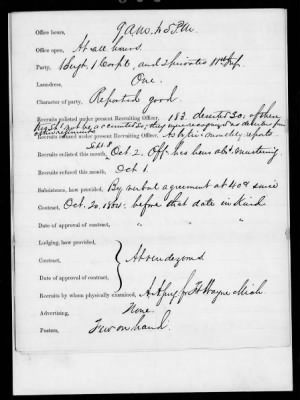 Office hours, 9 a.m. to 5 P.M.
Office open, At all hours.
Party, 1 Sergt, 1 Corpl, and 3 privates 11th Inf.
Laundress, One.
Character of party, Reported good
Recruits enlisted under present Recruiting Officer, 183 deserted 30; of these
Recruits refused under present Recruiting Officer, As by tri-monthly reports
Recruits enlisted this month, Sept 8 Oct 2. Off. has been abst mustering
Recruits refused this month, Oct 1
Subsistence, how provided, By verbal agreement at 40¢ since
Contract, Oct. 20, 1864: before that date in kind
Date of approval of contract, " " "
Lodging, how provided,
Contract, At rendezvous
Date of approval of contract,
Recruits by whom physically examined, A. A. Surg. fr Ft Wayne Mich
Advertising, None
Posters, Few on hand.